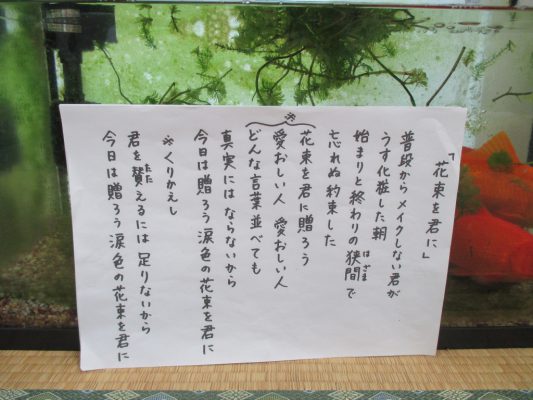 「花束を君に」
普段からメイクしない君が
うす化粧した朝
始まりと終わりの狭間で
はざま
忘れぬ約束した
※
花束を君に贈ろう
愛おしい人 愛おしい人
どんな言葉並べても
真実にはならないから
今日は贈ろう 涙色の花束を君に
※くりかえし
君を賛えるには足りないから
たた
今日は贈ろう 涙色の花束を君に